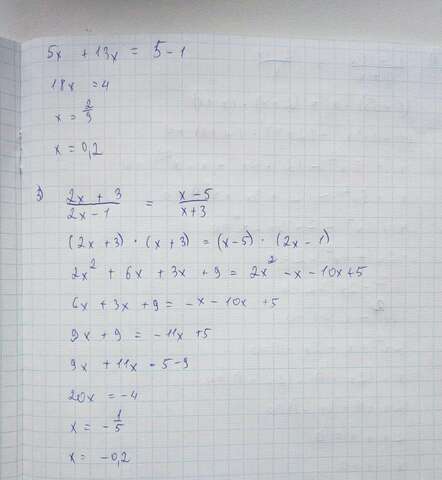 5x + 13x = 5 - 1
18x = 4
x = 2/9
x = 0,2
3) (2x + 3)/(2x - 1) = (x - 5)/(x + 3)
(2x + 3) · (x + 3) = (x - 5) · (2x - 1)
2x² + 6x + 3x + 9 = 2x² - x - 10x + 5
6x + 3x + 9 = -x - 10x + 5
9x + 9 = -11x + 5
9x + 11x = 5 - 9
20x = -4
x = -1/5
x = -0,2